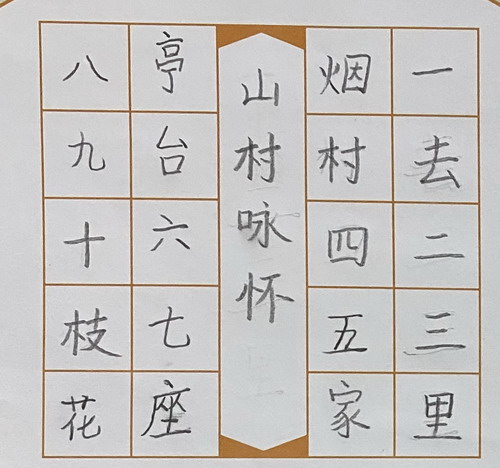 一去二三里
烟村四五家
山村咏怀
亭台六七座
八九十枝花